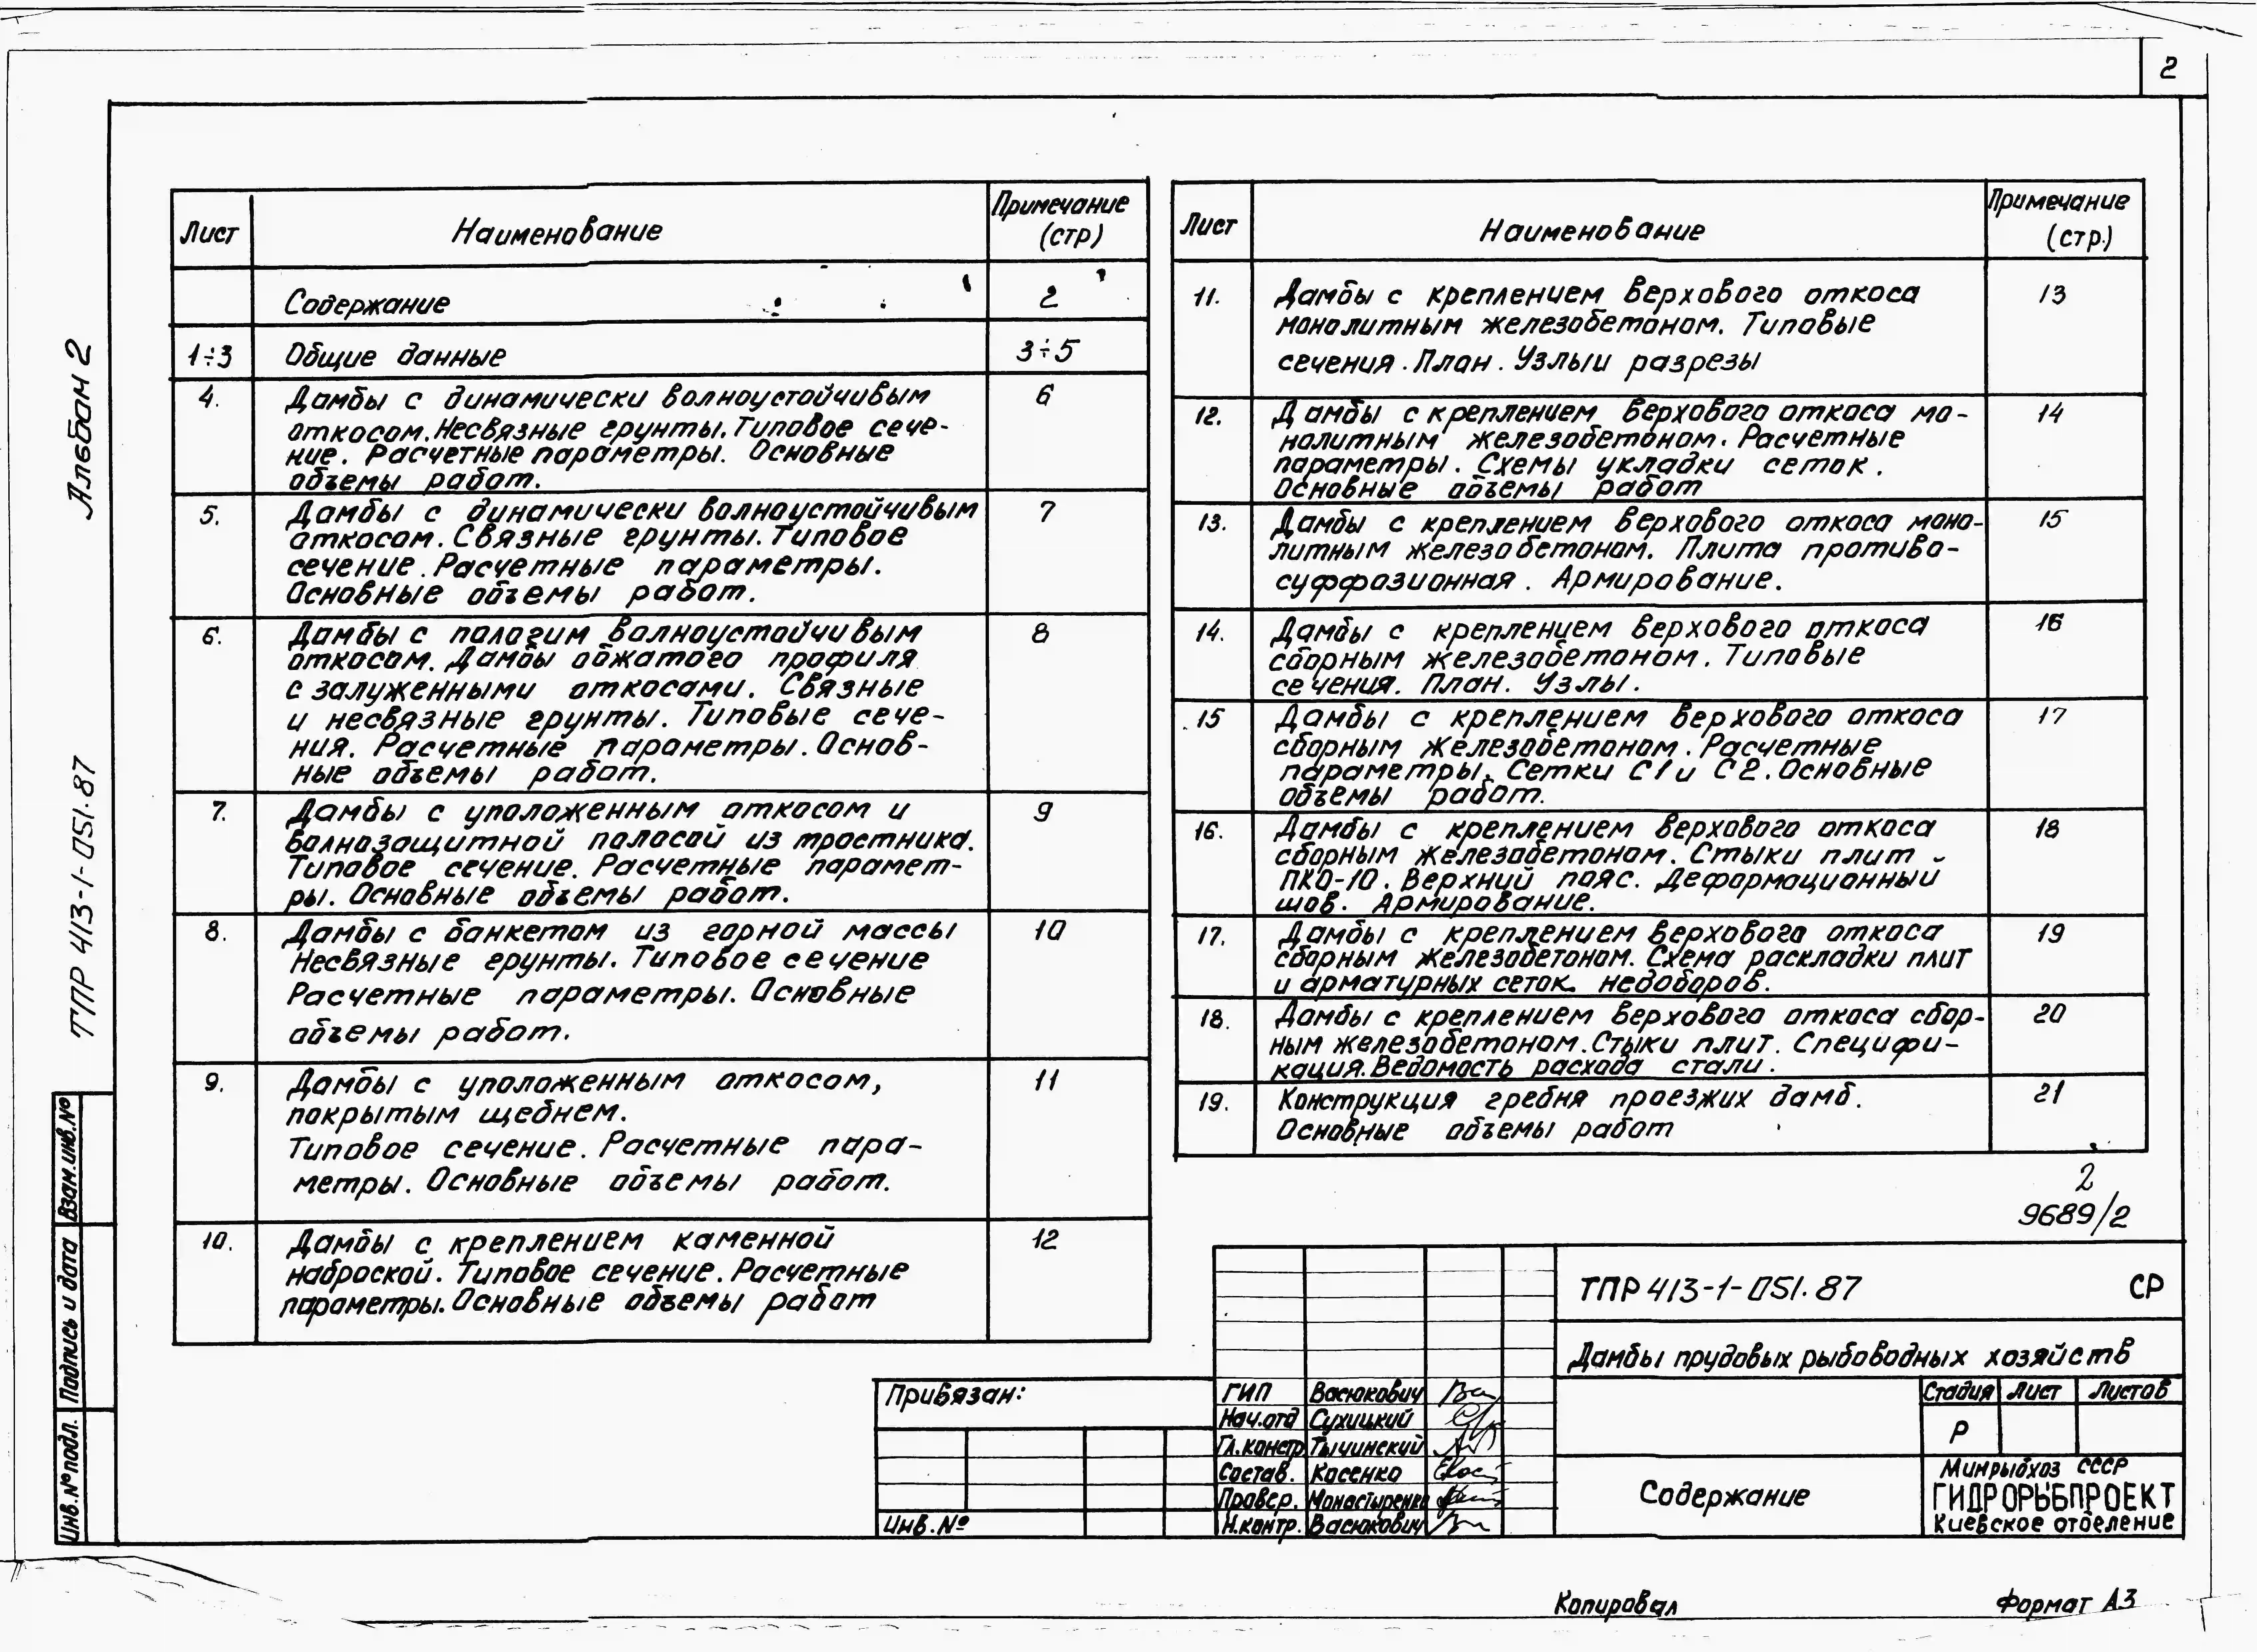 2
Альбом 2
ТПР 413-1-051.87
Взам.инв.№
Подпись и дата
Инв.№ подл.
Лист
Наименование
Примечание
(стр)
Содержание
2
1÷3
Общие данные
3÷5
4.
Дамбы с динамически волноустойчивым
6
откосом. Несвязные грунты. Типовое сече-
ние. Расчетные параметры. Основные
объемы работ.
5.
Дамбы с динамически волноустойчивым
7
откосом. Связные грунты. Типовое
сечение. Расчетные параметры.
Основные объемы работ.
6.
Дамбы с пологим волноустойчивым
8
откосом. Дамбы обжатого профиля
с залуженными откосами. Связные
и несвязные грунты. Типовые сече-
ния. Расчетные параметры. Основ-
ные объемы работ.
7.
Дамбы с уположенным откосом и
9
волнозащитной полосой из тростника.
Типовое сечение. Расчетные парамет-
ры. Основные объемы работ.
8.
Дамбы с банкетом из горной массы
10
Несвязные грунты. Типовое сечение
Расчетные параметры. Основные
объемы работ.
9.
Дамбы с уположенным откосом,
11
покрытым щебнем.
Типовое сечение. Расчетные пара-
метры. Основные объемы работ.
10.
Дамбы с креплением каменной
12
наброской. Типовое сечение. Расчетные
параметры. Основные объемы работ
Лист
Наименование
Примечание
(стр.)
11.
Дамбы с креплением верхового откоса
13
монолитным железобетоном. Типовые
сечения. План. Узлы и разрезы
12.
Дамбы с креплением верхового откоса мо-
14
нолитным железобетоном. Расчетные
параметры. Схемы укладки сеток.
Основные объемы работ
13.
Дамбы с креплением верхового откоса моно-
15
литным железобетоном. Плита противо-
суффозионная. Армирование.
14.
Дамбы с креплением верхового откоса
16
сборным железобетоном. Типовые
сечения. План. Узлы.
15
Дамбы с креплением верхового откоса
17
сборным железобетоном. Расчетные
параметры. Сетки С1 и С2. Основные
объемы работ.
16.
Дамбы с креплением верхового откоса
18
сборным железобетоном. Стыки плит
ПКО-10. Верхний пояс. Деформационный
шов. Армирование.
17.
Дамбы с креплением верхового откоса
19
сборным железобетоном. Схема раскладки плит
и арматурных сеток недоборов.
18.
Дамбы с креплением верхового откоса сбор-
20
ным железобетоном. Стыки плит. Специфи-
кация. Ведомость расхода стали.
19.
Конструкция гребня проезжих дамб.
21
Основные объемы работ
2
9689/2
ТПР 413-1-051.87 СР
Дамбы прудовых рыбоводных хозяйств
Привязан:
Инв.№
ГИП Васюкович
Нач.отд Сухицкий
Гл.констр Тычинский
Состав. Косенко
Провер. Монастыренко
Н.контр. Васюкович
Стадия Лист Листов
Р
Содержание
Минрыбхоз СССР
ГИДРОРЫБПРОЕКТ
Киевское отделение
Копировал
Формат А3